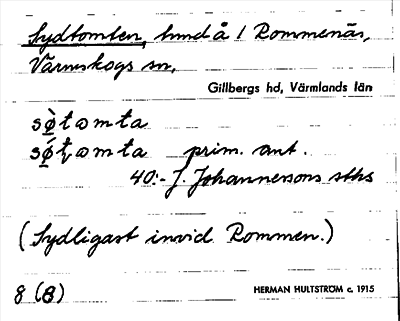 Sydtomten, hmd å 1 Rommenäs,
Värmskogs sn,
Gillbergs hd, Värmlands län
sø̀tωmta
sǿtωmta prim. ant.
40:- J. Johannessons sths
(Sydligast invid Rommen.)
8 (8)
HERMAN HULTSTRÖM c. 1915